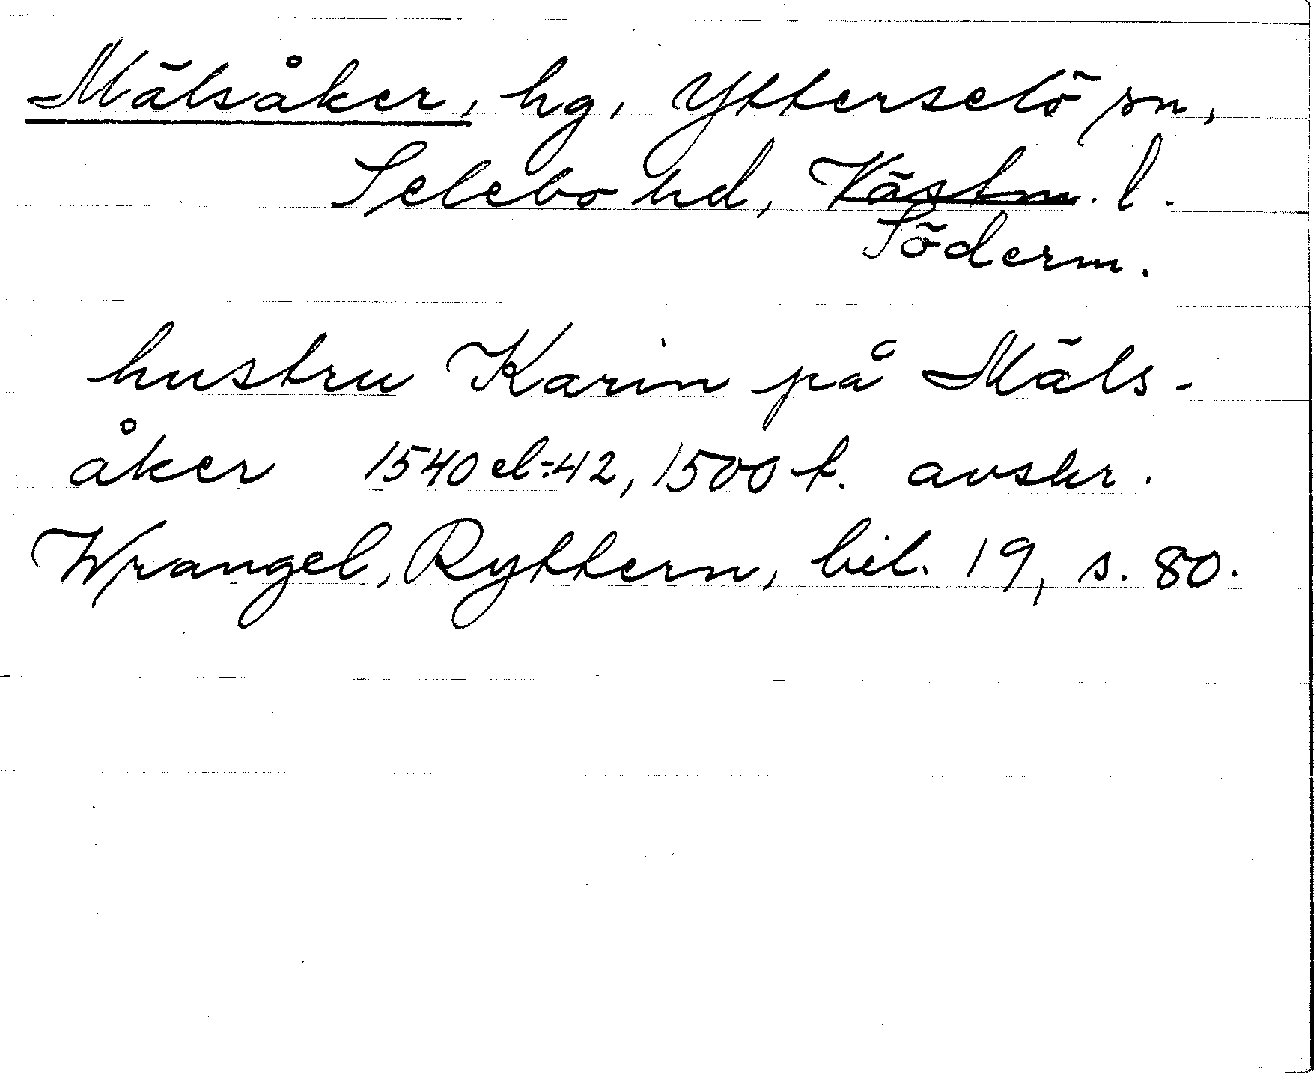 Mälsåker, hg, Ytterselö sn,
Selebo hd, Västm. l.
Söderm.
hustru Karin på Mäls-
åker 1540 el-42, 1500 t. avskr.
Wrangel, Ryttern, bil. 19, s. 80.